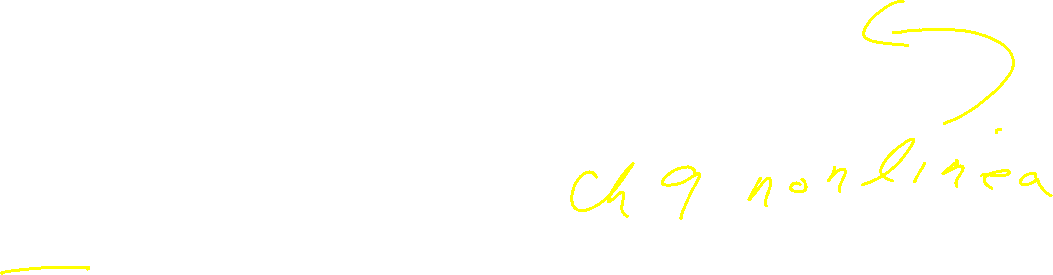 ch 9 nonlinea